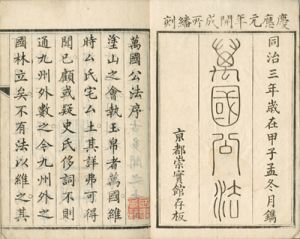 慶應元年開成所繙刻
同治三年歳在甲子孟冬月鐫
萬國公法
京都崇實館存板
萬國公法序
塗山之會執玉帛者萬國維
時幺氏宅幺土其詳弗可得
聞已顧或疑史氏侈詞不則
通九州外數之今九州外之
國林立矣不有法以維之其